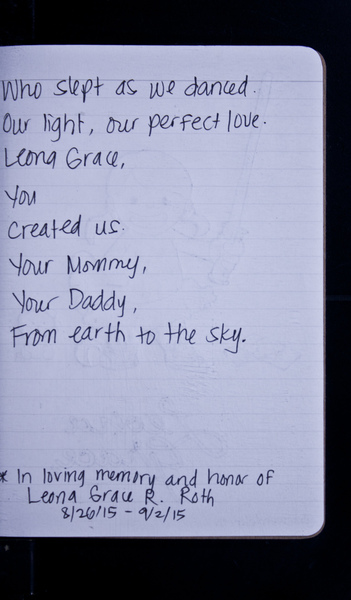 Who slept as we danced.
Our light, our perfect love.
Leona Grace,
You
Created us.
Your Mommy,
Your Daddy,
From earth to the sky.
* In loving memory and honor of
Leona Grace R. Roth
8/26/15 - 9/2/15